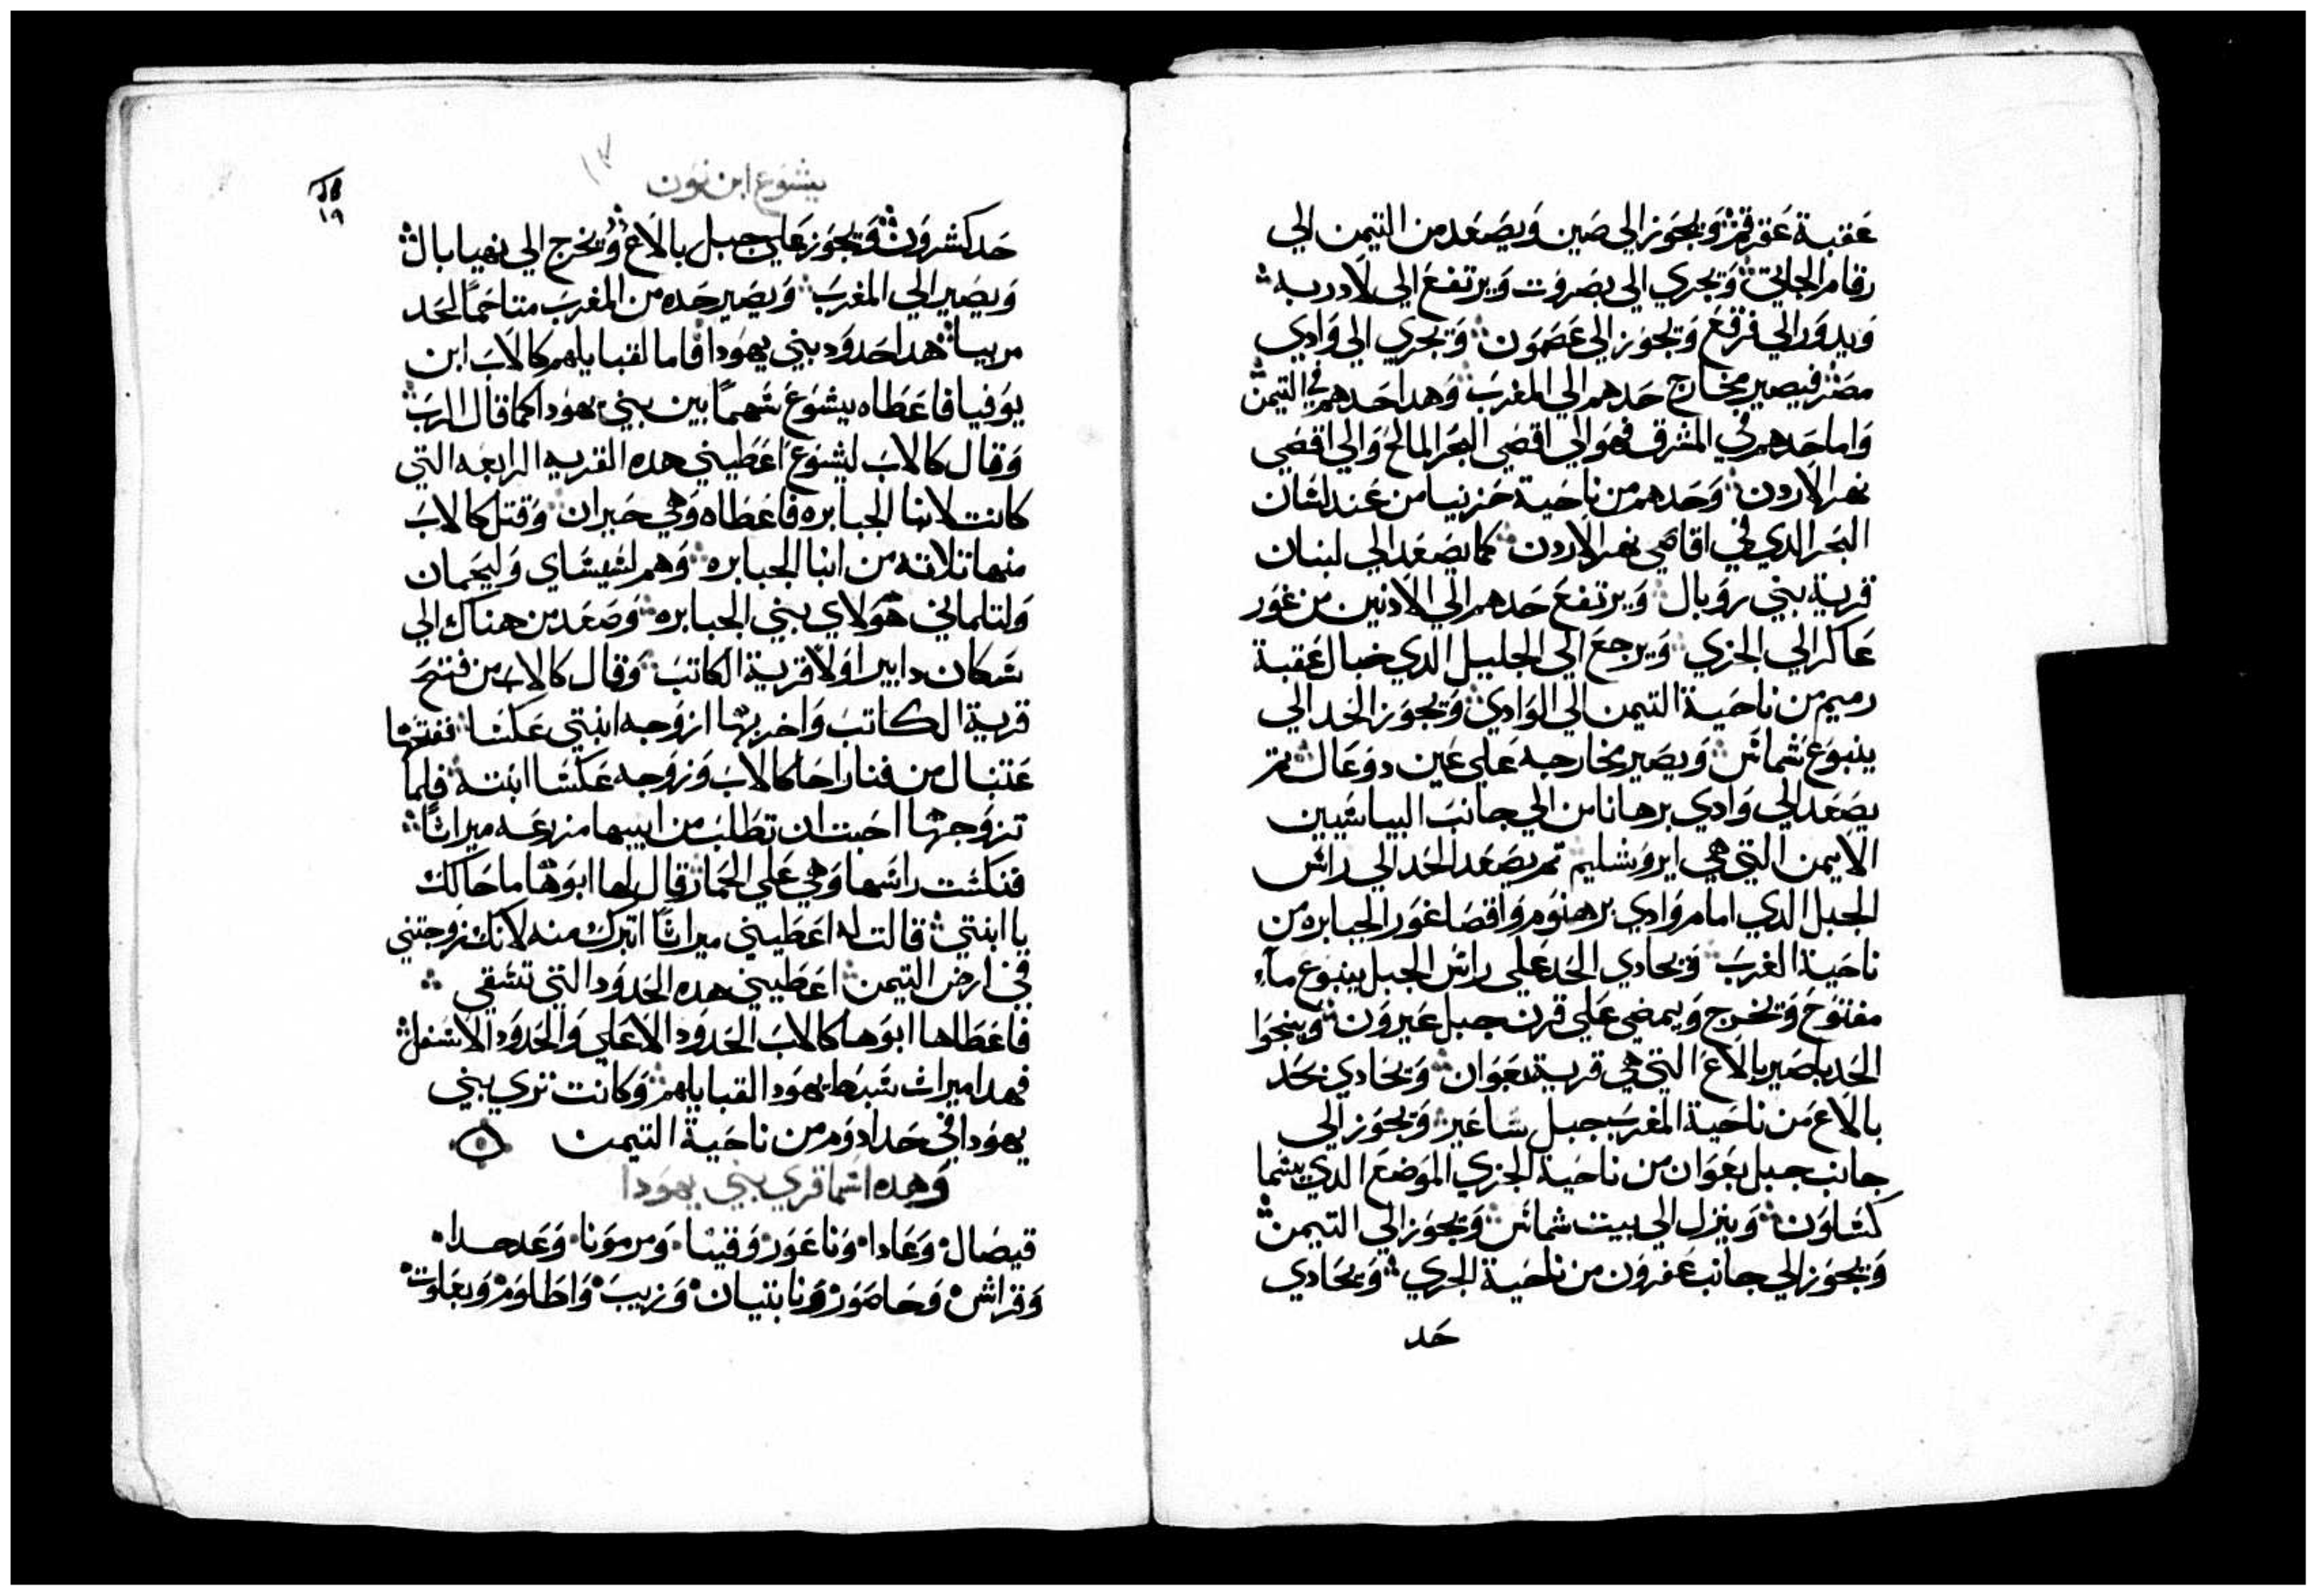 عقبة عقرقم ويجوز الي صين ويصعد من التيمن الي
رقام الجاني ويجري الي بصروت ويرتفع الي لادربه
ويدور الي فرقع ويجوز الي عصمون ويجري الي وادي
مصر فيصير مخارج حدهم الي المغرب وهدا حدهم في التيمن
واما حدهم في المشرق فهو الي اقصي البحر المالح والي اقصي
نهر الاردن وحدهم من ناحية خزنيا من عند لسان
البحر الدي في اقاصي نهر الاردن كما يصعد الي لبنان
قرية بني روبال ويرتفع حدهم الي الادنين من غور
عاكر الي الجزي ويرجع الي الجليل الدي حبال عقبة
رميم من ناحية التيمن الي الوادي ويجوز الحد الي
ينبوع شماس ويصير مخارجه علي عين دوعال ثم
يصعد الي وادي برهانا من الي جانب اليباسيين
الايمن التي هي ايروشليم ثم يصعد الحد الي راس
الجبل الدي امام وادي برهنوم واقصا غور الجبابره من
ناحية الغرب ويحادي الحد علي راس الجبل ينبوع مآء
مفتوح ويخرج ويمضي علي قرن جبل عيرون وينجوا
الحد باصير بالاع التي هي قرية بعوان ويحادي بحد
بالاع من ناحية المغرب جبل ساعير ويجوز الي
جانب جبل بعوان من ناحية الجزي الموضع الدي يسما
كساون وينزل الي بيت شماس ويجوز الي التيمن
ويجوز الي جانب عفرون من ناحية الجري ويحادي
حد
يشوع ابن نون
١٩
حد كشرون ويجوز علي جبل بالاع ويخرج الي نفيا بال
ويصير الي المغرب ويصير حده من المغرب متاخمًا لحد
مريبا هدا حدود بني يهودا فاما لقبايلهم كالاب ابن
يوفيا فاعطاه يشوع سهمًا بين بني يهودا كما قال الرب
وقال كالاب ليشوع اعطيني هده القريه الرابعه التي
كانت لابنا الجبابره فاعطاه وهي حبران وقتل كالاب
منها تلاته من ابنا الجبابره وهم لشيشاي وليحمان
ولتلماني هولاي بني الجبابره وصعد من هناك الي
سكان دابير اولا قرية الكاتب وقال كالاب من فتح
قرية الكاتب واخربها ازوجه ابنتي عكسا ففتحها
عتنال من فنار اخا كالاب وزوجه عكسا ابنته فلما
تزوجها احبت ان تطلب من ابيها مزرعه ميراثًا
فنكست راسها وهي علي الحمار قال لها ابوها ما حالك
يا ابنتي قالت له اعطيني ميراثًا اتبرك منه لانك زوجتني
في ارض التيمن اعطيني هده الحدود التي تسقي
فاعطاها ابوها كالاب الحدود الاعلي والحدود الاسفل
فهدا ميراث سبط يهودا لقبايلهم وكانت تري بني
يهودا في حد ادوم من ناحية التيمن
وهده اسما قري بني يهودا
قيصال وعادا وناغور وقينا ومرمونا وعدحدا
وقراش وحاصور ونابنيان وزيب واطاوم وبعلوت